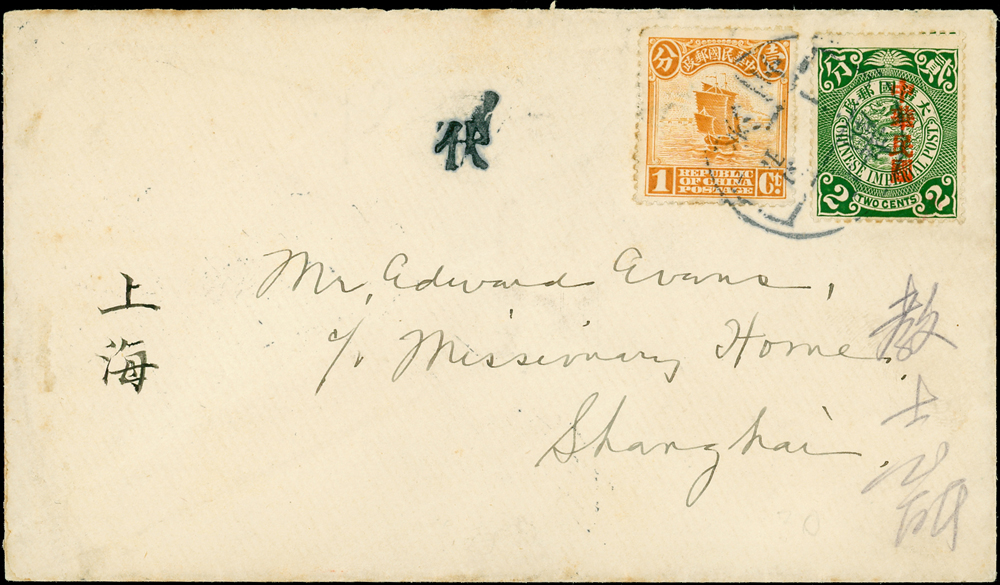 分 壹
政郵國民華中
1 REPUBLIC OF CHINA POSTAGE Ct.
分 貳
政郵國清大
中華民國
CHINESE IMPERIAL POST
2 TWO CENTS 2
Mr. Edward Evans,
c/o Missionary Home,
Shanghai.
上海
教士